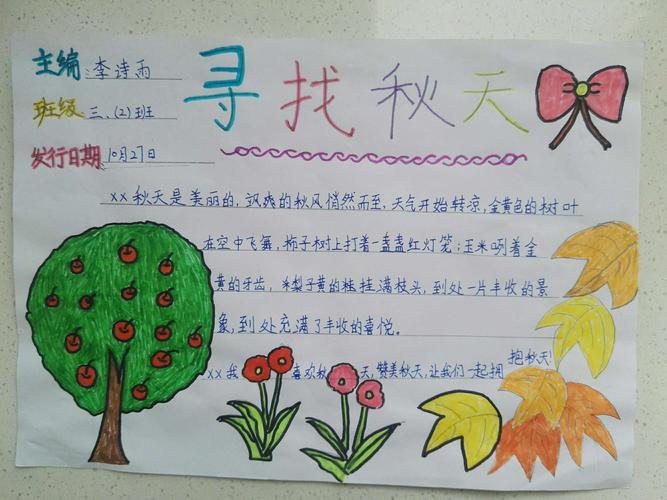 寻找秋天
主编 李诗雨
班级 三、(2)班
发行日期 10月27日
××秋天是美丽的，飒爽的秋风悄然而至，天气开始转凉，金黄色的树叶
在空中飞舞，柿子树上打着一盏盏红灯笼；玉米咧着金
黄的牙齿，梨子黄的挂满枝头，到处一片丰收的景
象，到处充满了丰收的喜悦。
××我喜欢秋天，赞美秋天，让我们一起拥
抱秋天！